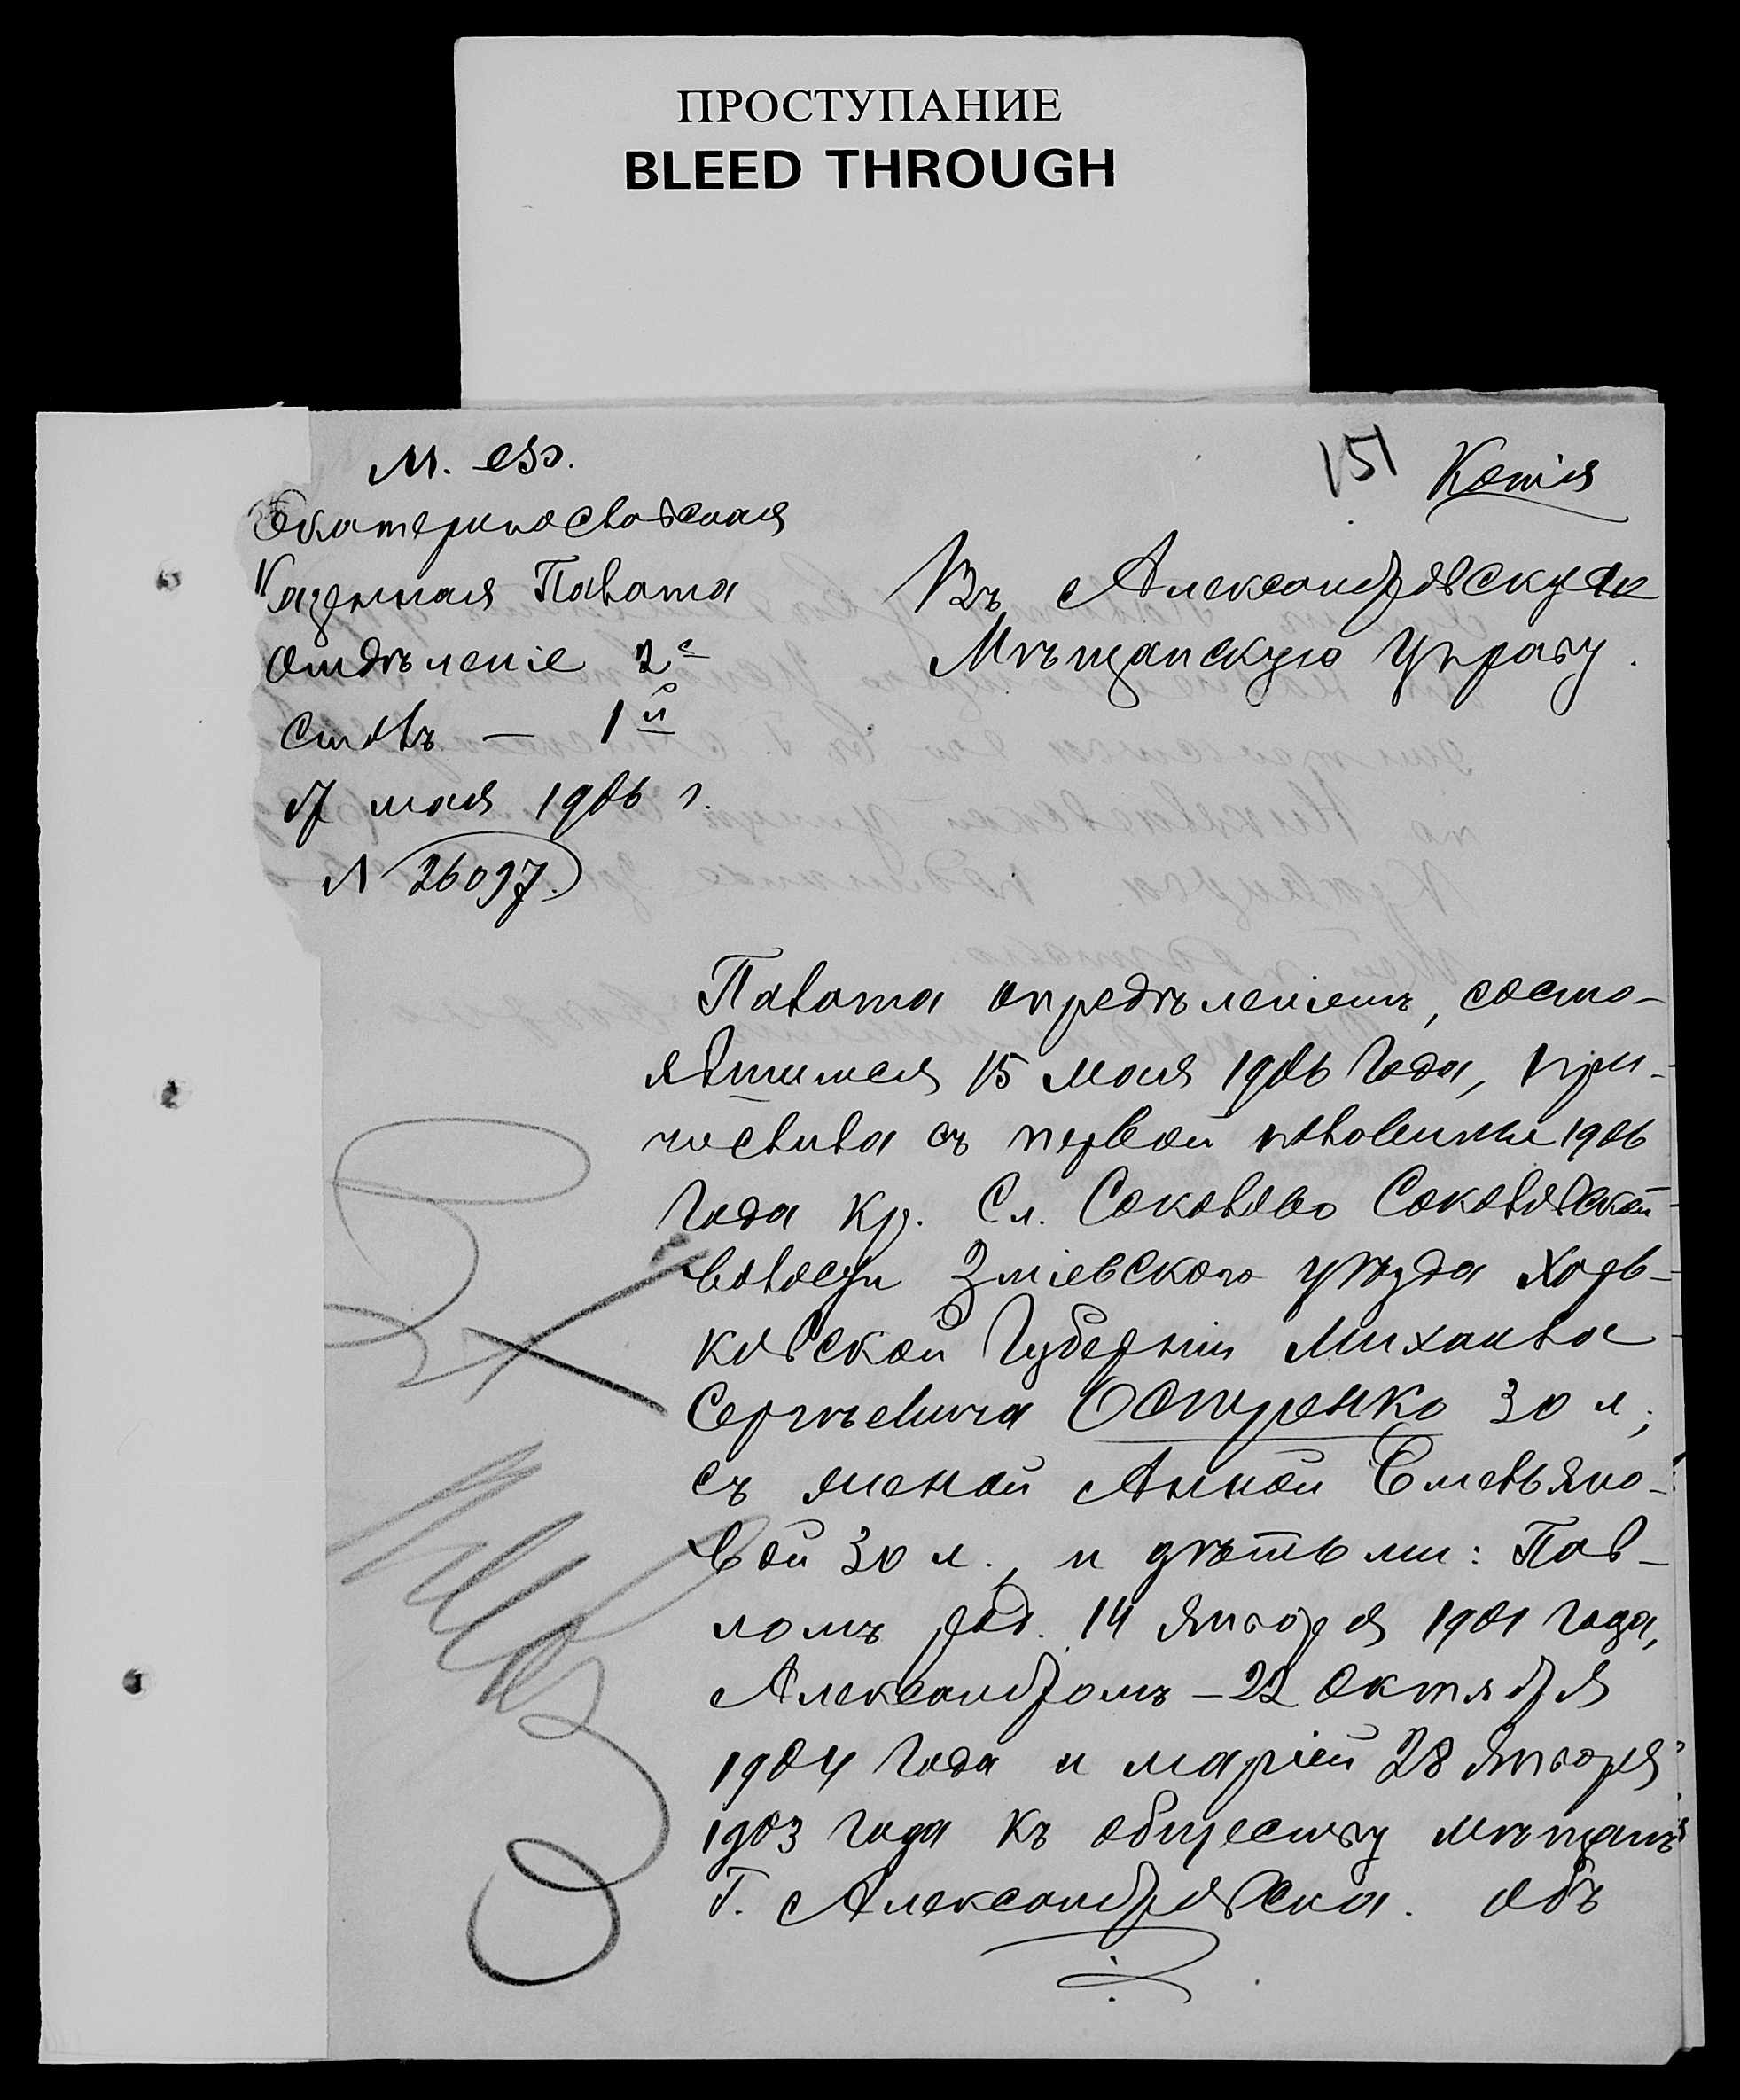 ПРОСТУПАНИЕ
BLEED THROUGH
151 Копія
М.
Екатеринославская
Казенная Палата
Отдѣленіе 2е
столъ — 1й
17 мая 1906 г.
№ 26097.
Въ Александровскую
Мѣщанскую Управу.
Палата опредѣленіемъ, состо-
явшимся 15 мая 1906 года, при-
числила съ первой половины 1906
года кр. Сл. Соколово Соколовской
волости Зміевского уѣзда Харь-
ковской губерніи Михаила
Сергѣевича Остренко 30 л.,
съ женой Анной Емельяно-
вой 30 л., и дѣтьми: Пав-
ломъ род. 14 января 1901 года,
Александромъ – 22 октября
1904 года и маріей 28 января
1903 года къ обществу мѣщанъ
Г. Александровска. Объ